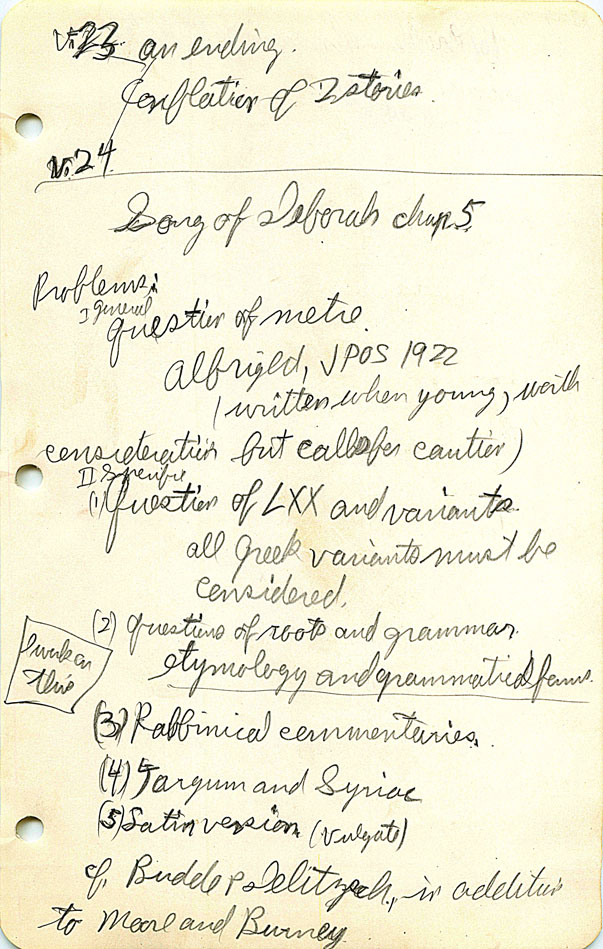 v. 23 an ending.
Conflation of 2 stories.
v. 24
Song of Deborah chap. 5
Problems:
I general
question of metre.
Albright, JPOS 1922
(written when young, worth
consideration but calls for caution)
II Specific
(1) Question of LXX and variants.
all Greek variants must be
considered.
(2) questions of roots and grammar.
etymology and grammatical forms.
I work on
this
(3) Rabbinical commentaries.
(4) Targum and Syriac
(5) Latin version (Vulgate)
cf. Budde, Delitzsch, in addition
to Moore and Burney